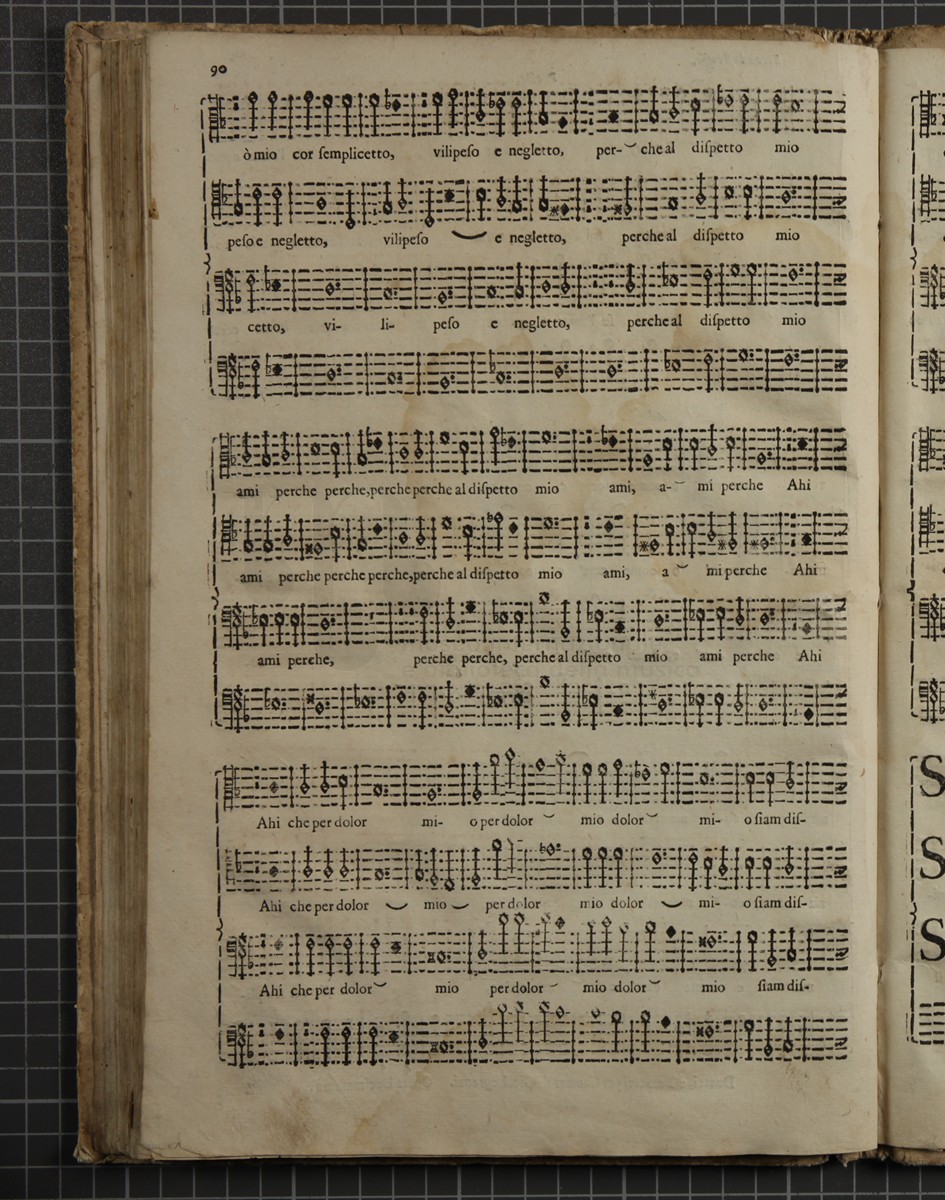 90
ò mio cor ſemplicetto, vilipeſo e negletto, per- che al diſpetto mio
peſo e negletto, vilipeſo e negletto, perche al diſpetto mio
cetto, vi- li- peſo e negletto, perche al diſpetto mio
ami perche perche, perche perche al diſpetto mio ami, a- mi perche Ahi
ami perche perche perche, perche al diſpetto mio ami, a mi perche Ahi
ami perche, perche perche, perche al diſpetto mio ami perche Ahi
Ahi che per dolor mi- o per dolor mio dolor mi- o ſiam diſ-
Ahi che per dolor mio per dolor mio dolor mi- o ſiam diſ-
Ahi che per dolor mio per dolor mio dolor mio ſiam diſ-
S
S
S